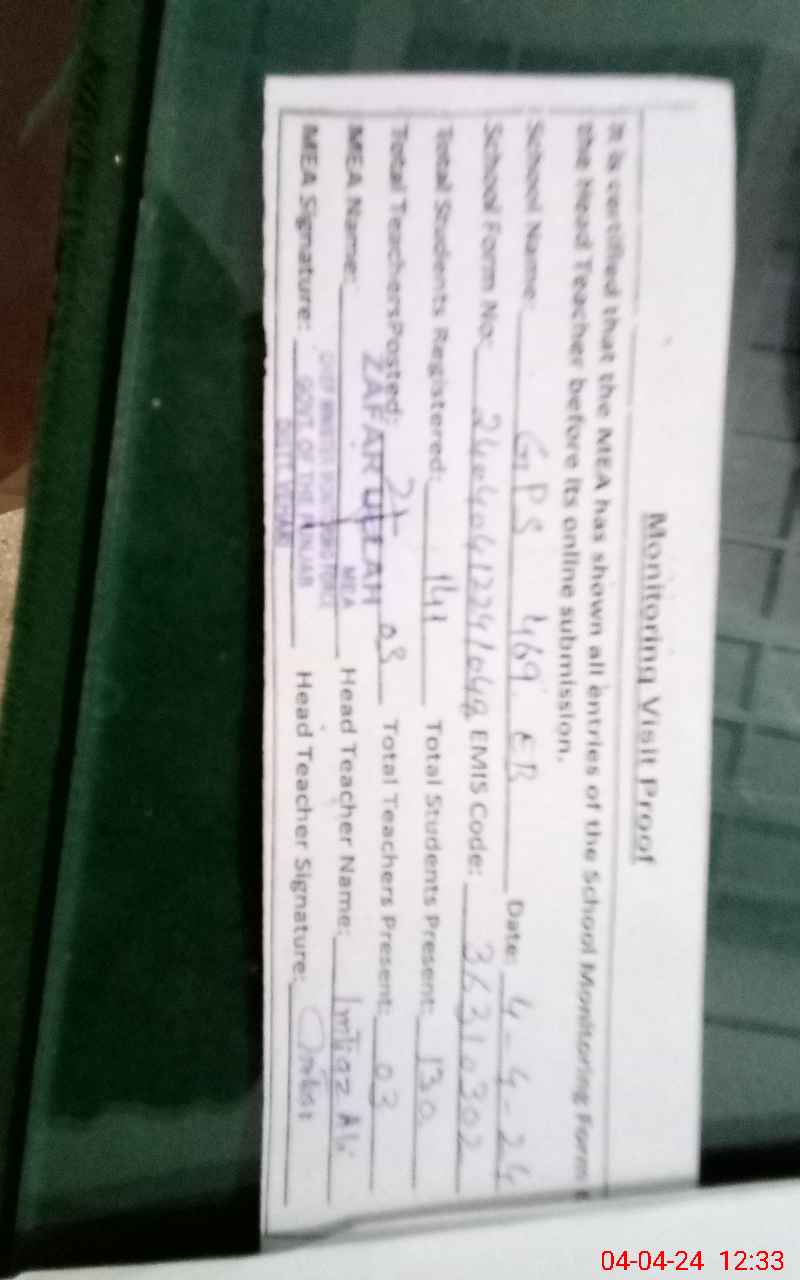 Monitoring Visit Proof
It is certified that the MEA has shown all entries of the School Monitoring Form
the Head Teacher before its online submission.
School Name: GPS 469 EB Date: 4-4-24
School Form No: EMIS Code: 36310302
Total Students Registered: 141 Total Students Present: 130
Total TeachersPosted: 03 Total Teachers Present: 03
MEA Name: ZAFAR ULLAH Head Teacher Name: Imtiaz Ali
MEA
MEA Signature: GOVT. OF THE PUNJAB Head Teacher Signature:
DISTT. VEHARI
04-04-24 12:33